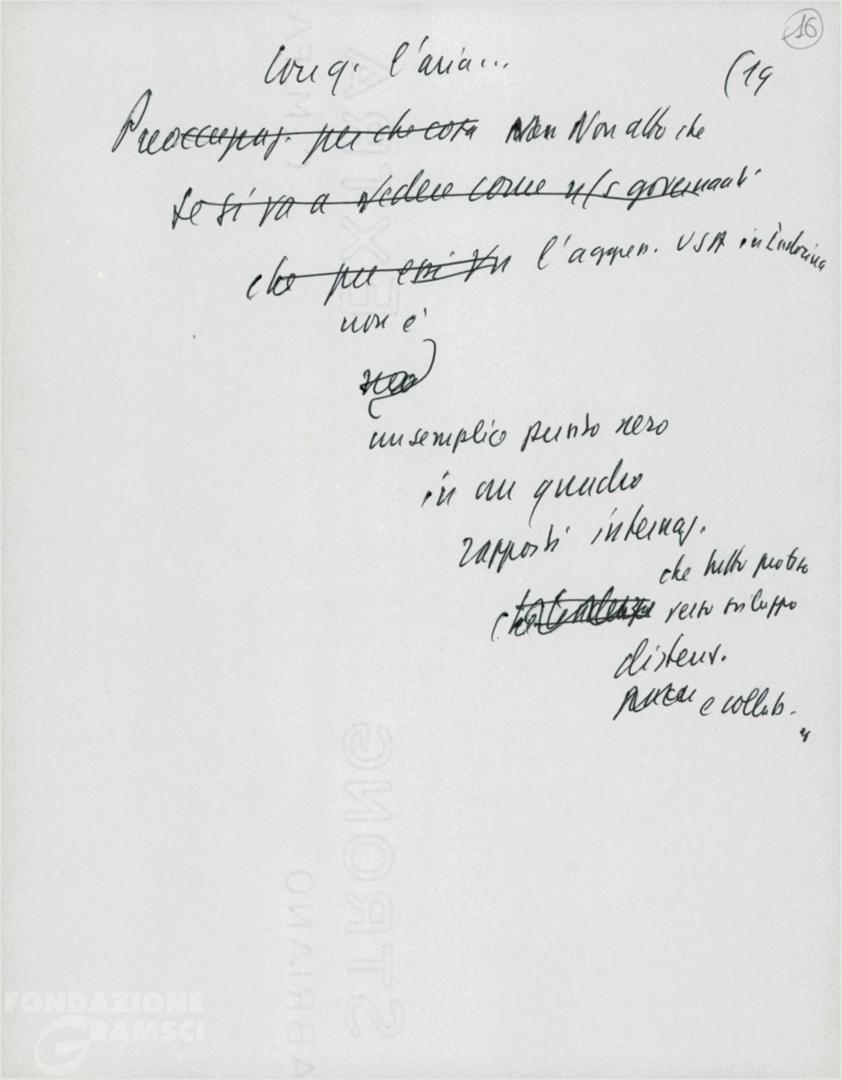 16
Cong. l'aria... (19
Preoccupaz. per che cosa Non Non altro che
se si va a vedere come n/s governanti
che per essi l'aggres. USA in Indocina
non è
un semplice punto nero
in un quadro
rapporti internaz.
che tutto proteso
verso sviluppo
distens.
e collab.
"
FONDAZIONE
GRAMSCI
STRONG
ABRIANO